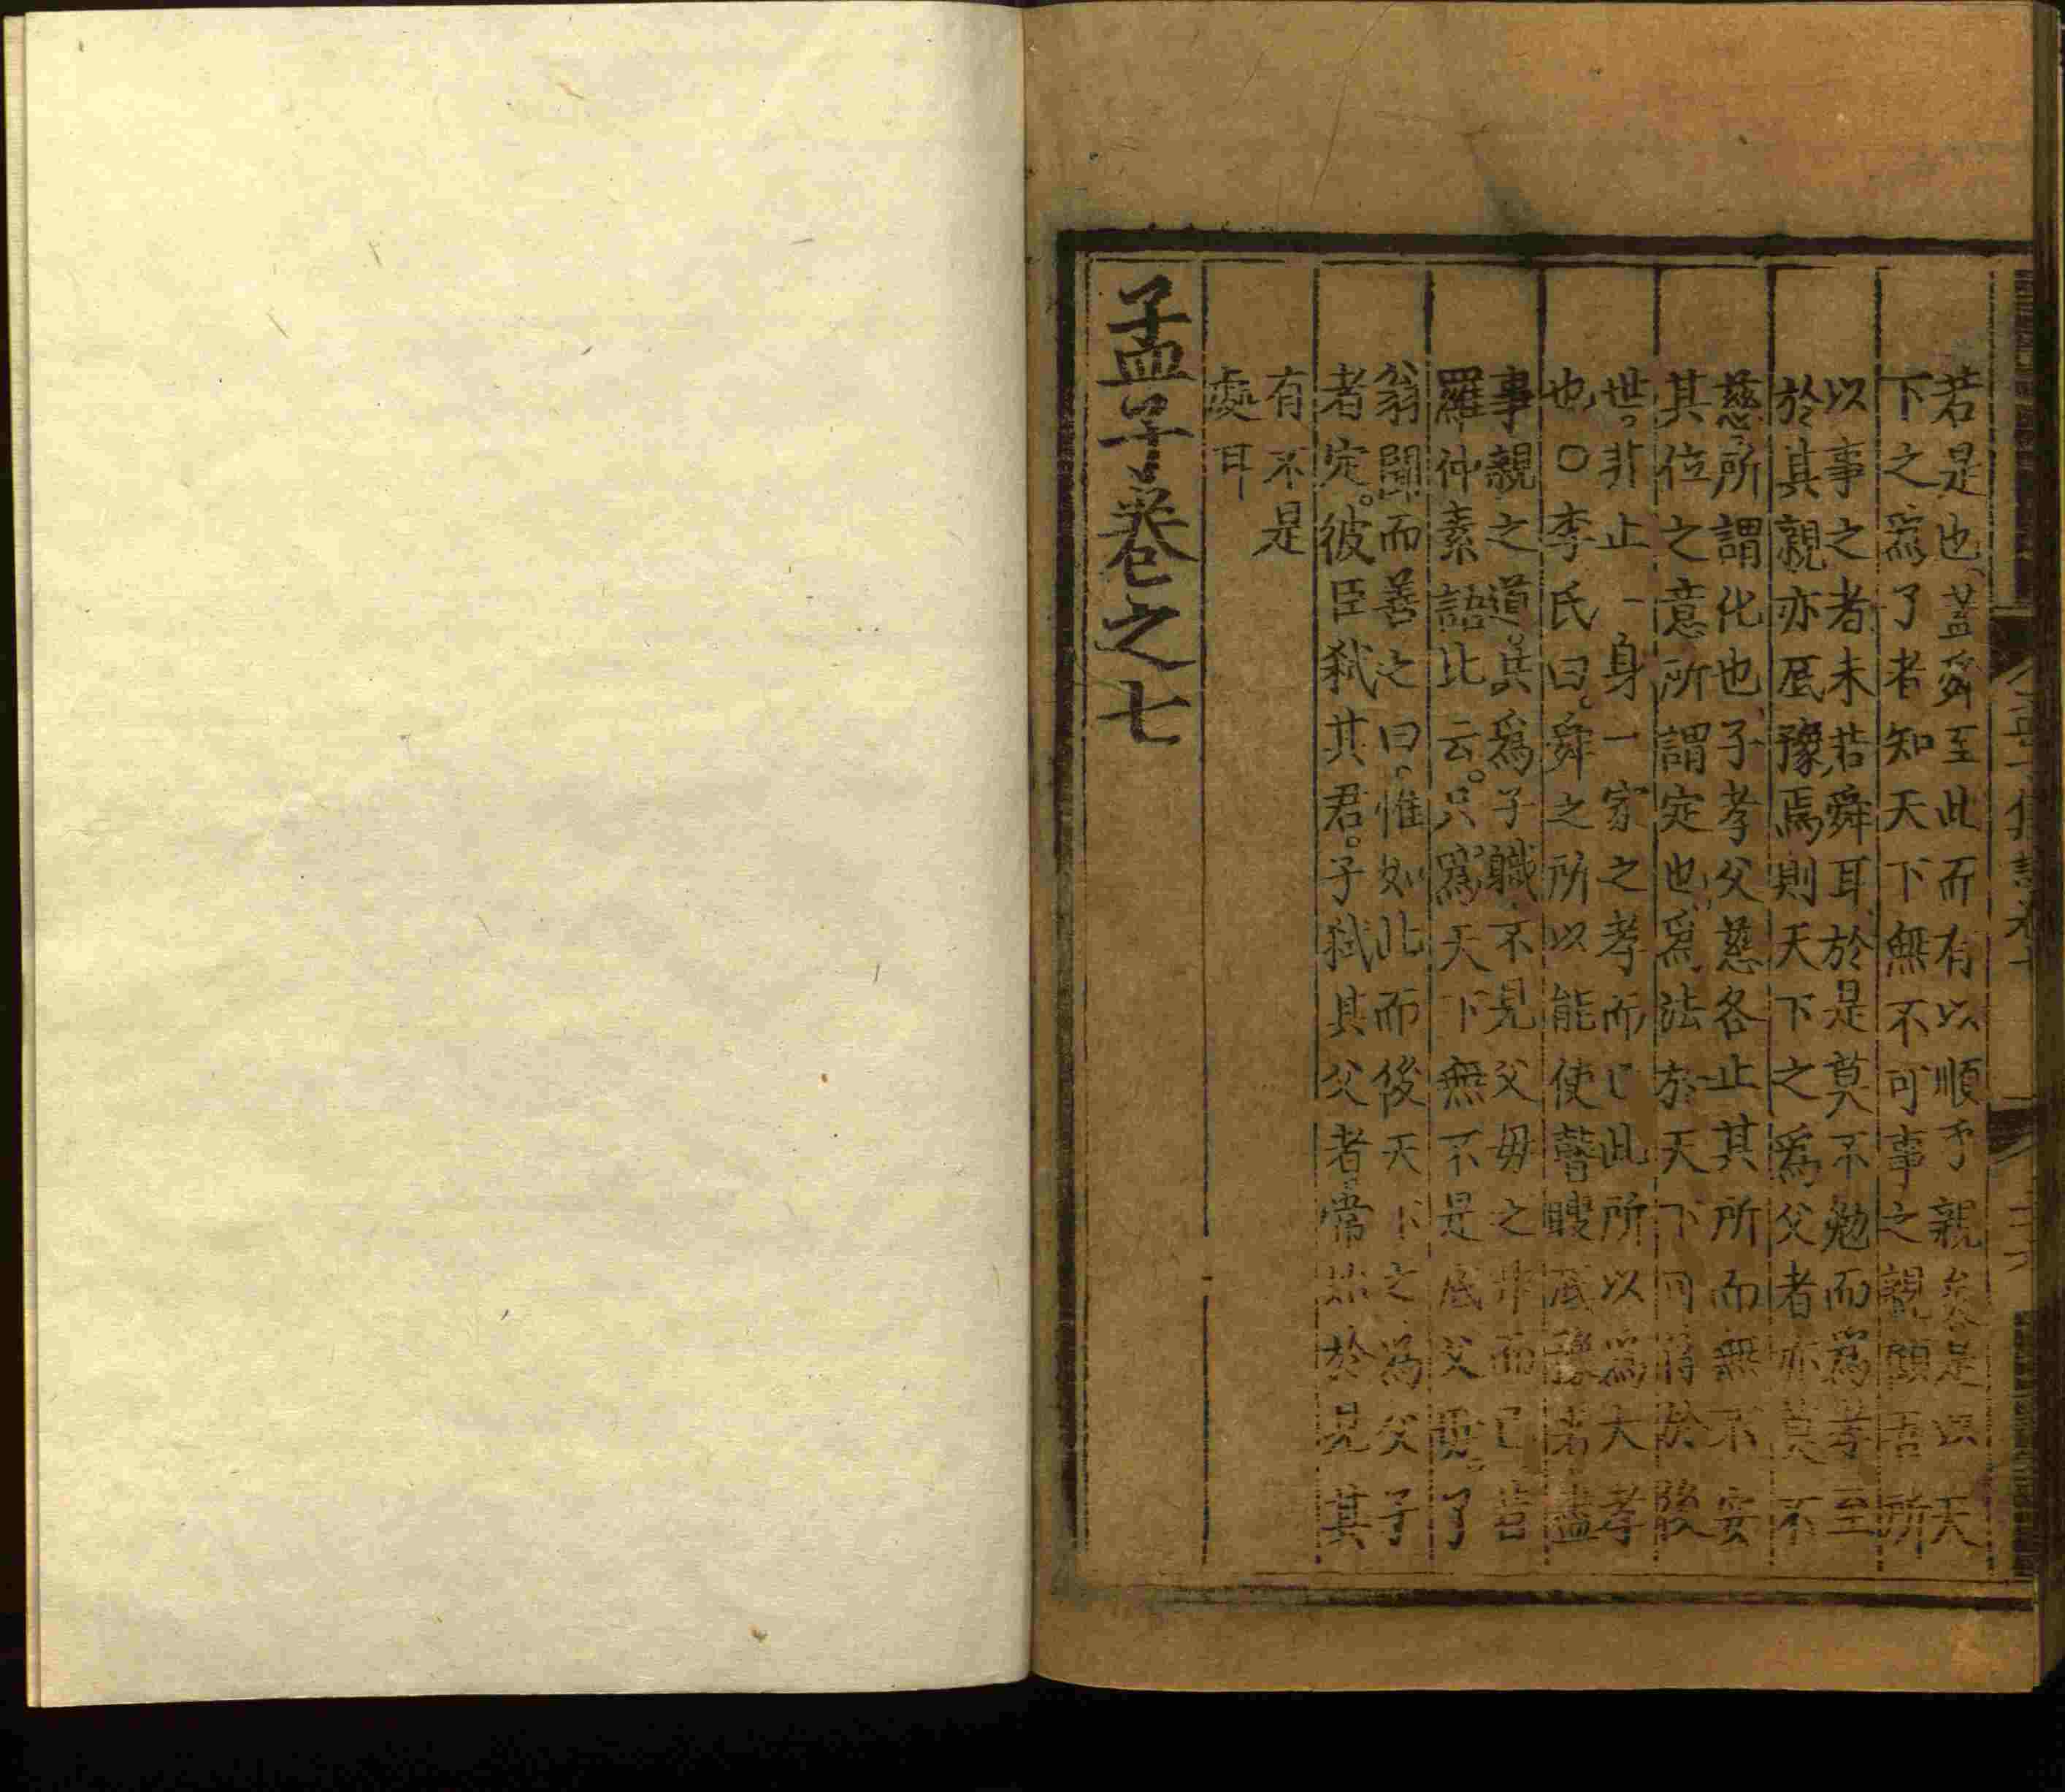 若是也蓋舜至此而有以順乎親矣是以天
下之爲子者知天下無不可事之親顧吾所
以事之者未若舜耳於是莫不勉而爲孝至
於其親亦厎豫焉則天下之爲父者亦莫不
慈所謂化也子孝父慈各止其所而無不安
其位之意所謂定也爲法於天下可傳於後
世。非止一身一家之孝而已此所以爲大孝
也○李氏曰。舜之所以能使瞽瞍厎豫者盡
事親之道。其爲子職不見父母之非而已昔
羅仲素語此云。只爲天下無不是底父母。了
翁聞而善之曰惟如此而後天下之爲父子
者定。彼臣弒其君。子弒其父者常始於見其
有不是
處耳
孟子卷之七